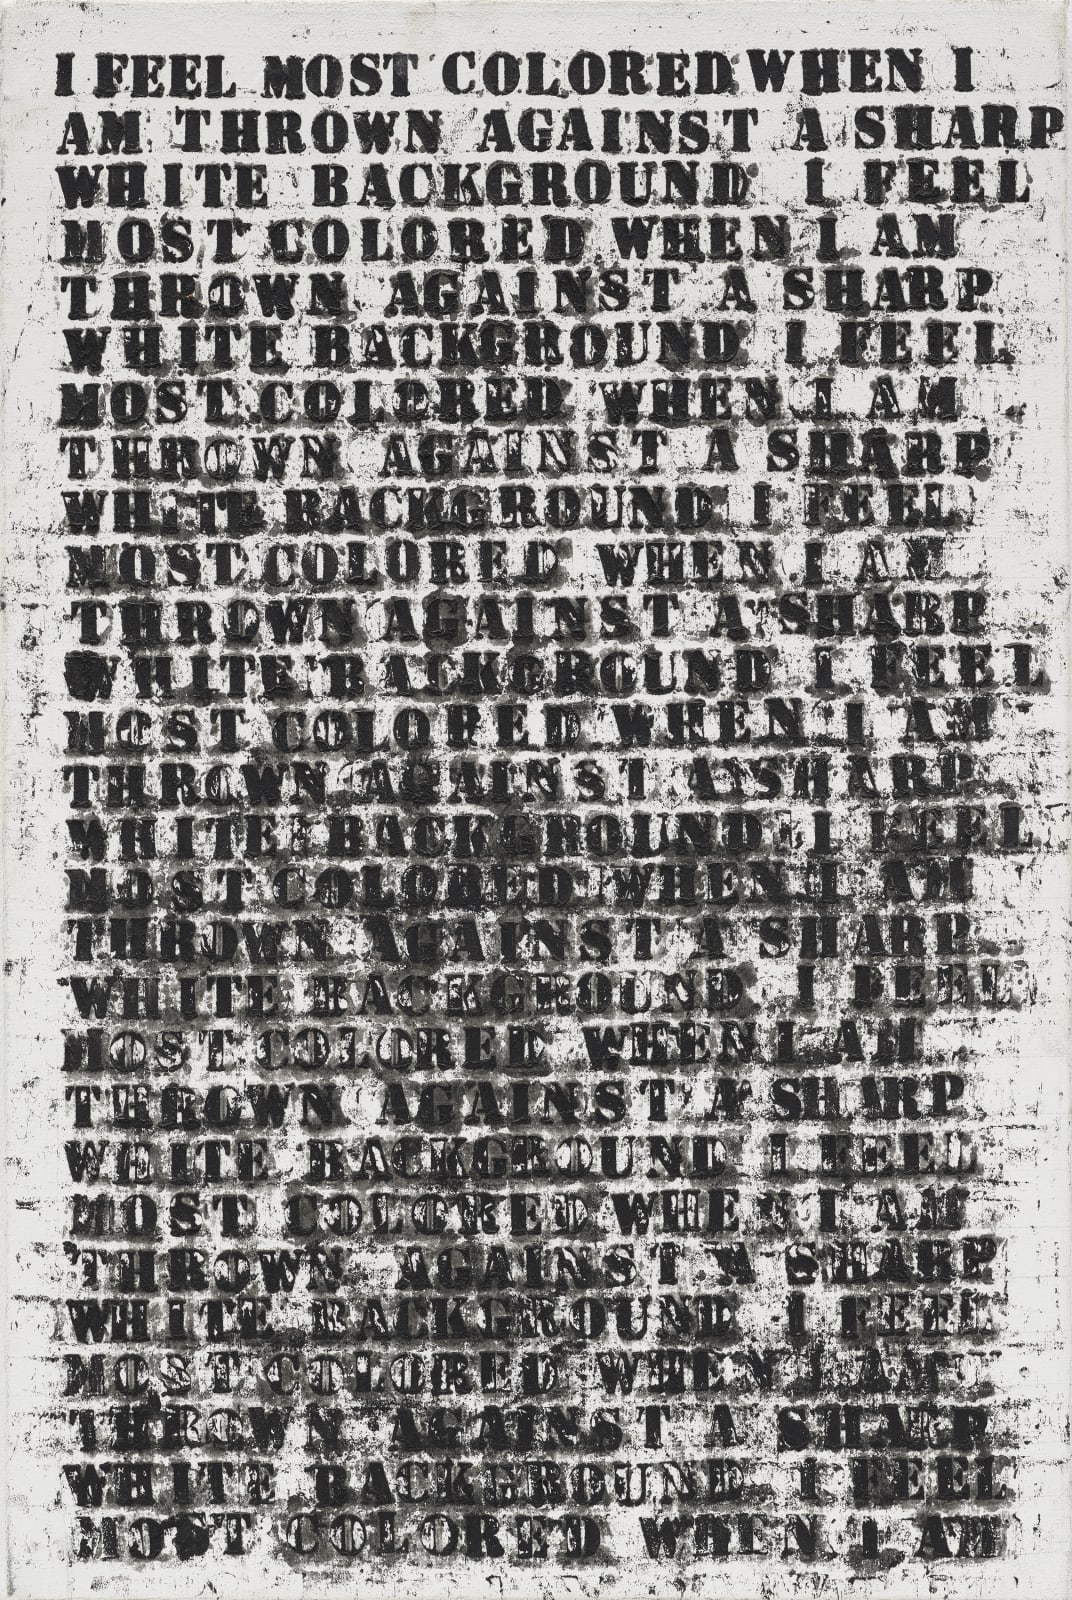 I FEEL MOST COLORED WHEN I
AM THROWN AGAINST A SHARP
WHITE BACKGROUND I FEEL
MOST COLORED WHEN I AM
THROWN AGAINST A SHARP
WHITE BACKGROUND I FEEL
MOST COLORED WHEN I AM
THROWN AGAINST A SHARP
WHITE BACKGROUND I FEEL
MOST COLORED WHEN I AM
THROWN AGAINST A SHARP
WHITE BACKGROUND I FEEL
MOST COLORED WHEN I AM
THROWN AGAINST A SHARP
WHITE BACKGROUND I FEEL
MOST COLORED WHEN I AM
THROWN AGAINST A SHARP
WHITE BACKGROUND I FEEL
MOST COLORED WHEN I AM
THROWN AGAINST A SHARP
WHITE BACKGROUND I FEEL
MOST COLORED WHEN I AM
THROWN AGAINST A SHARP
WHITE BACKGROUND I FEEL
MOST COLORED WHEN I AM
THROWN AGAINST A SHARP
WHITE BACKGROUND I FEEL
MOST COLORED WHEN I AM